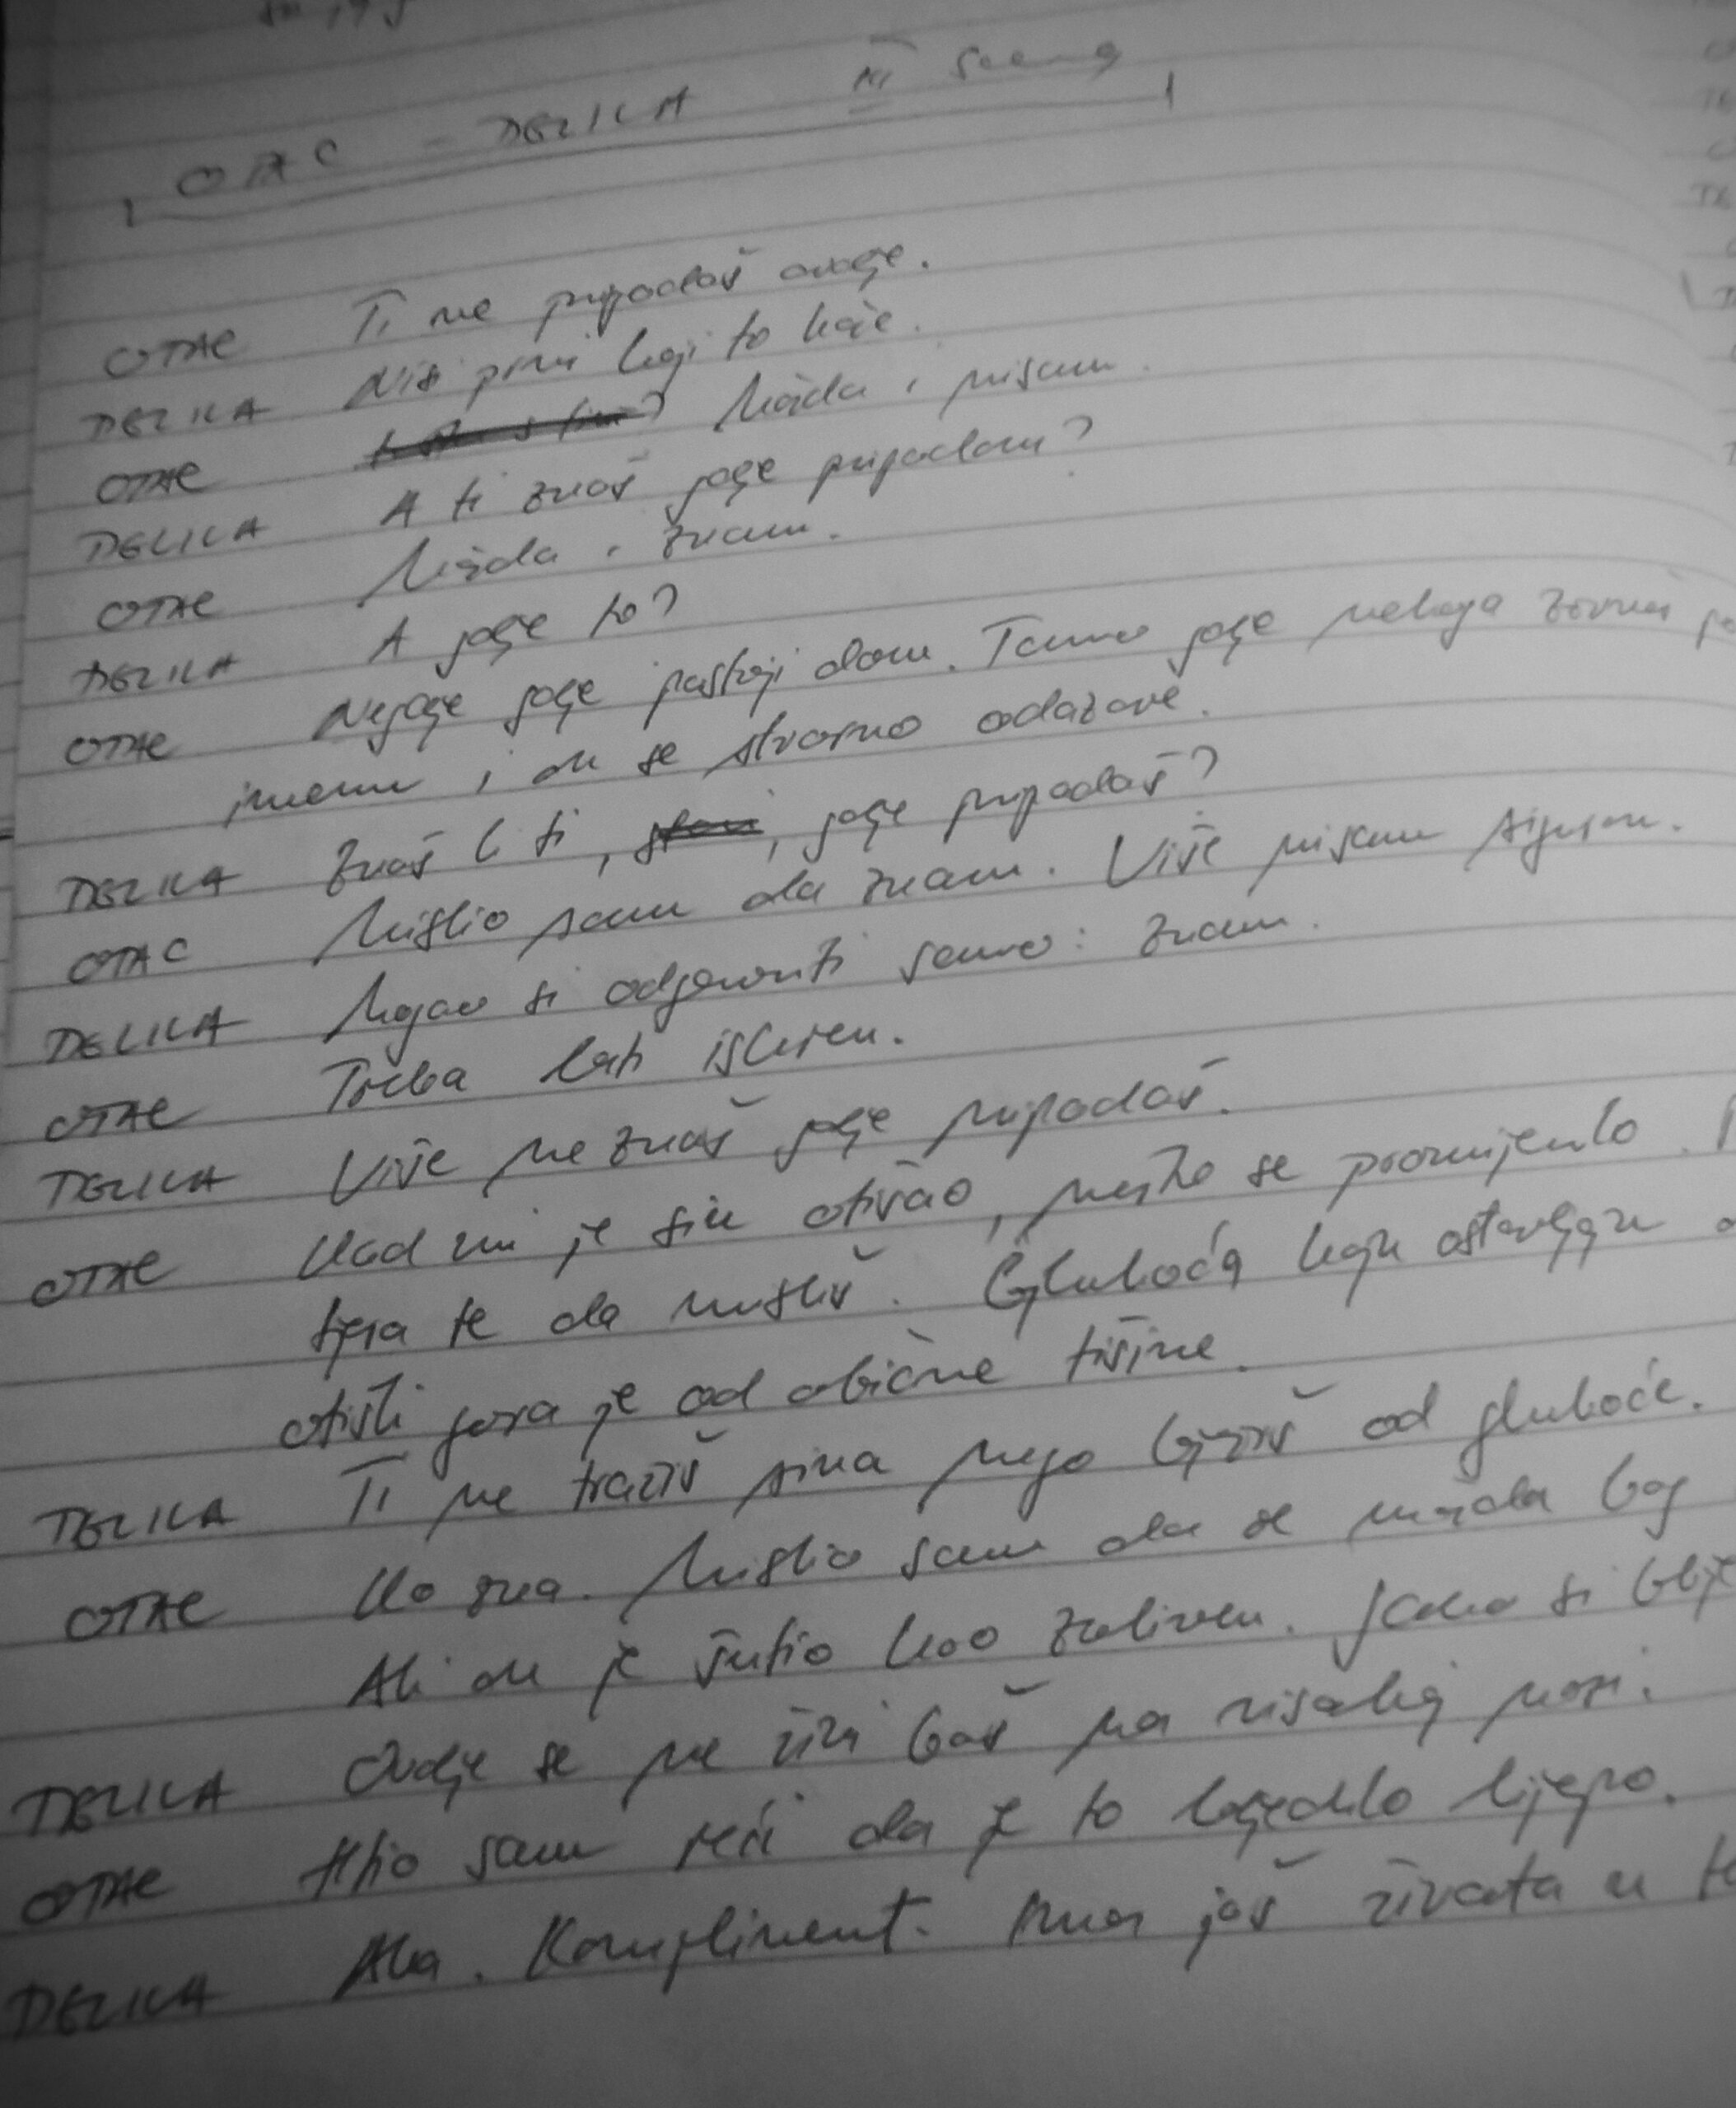 OTAC - DELILA III scena
OTAC Ti ne pripadaš ovdje.
DELILA Nisi prvi koji to kaže.
OTAC Možda i nisam.
DELILA A ti znaš gdje pripadam?
OTAC Možda i znam.
DELILA A gdje to?
OTAC Negdje gdje postoji dom. Tamo gdje nekoga zovneš po
imenu, i on se stvarno odazove.
DELILA Znaš l ti, gdje pripadaš?
OTAC Mislio sam da znam. Više nisam siguran.
DELILA Mogao si odgovoriti samo: znam.
OTAC Treba biti iskren.
DELILA Više ne znaš gdje pripadaš.
OTAC Kad mi je sin otišao, nešto se promijenilo.
tjera te da misliš. Gluhoća koju ostavljaju
otišli gora je od obične tišine.
DELILA Ti ne tražiš sina nego bježiš od gluhoće.
OTAC Ko zna. Mislio sam da se možda bog
Ali on je šutio kao zaliven. Jako si
DELILA Ovdje se ne živi baš na visokoj nozi.
OTAC Htio sam reći da je to blijedilo lijepo.
DELILA Aha. Kompliment. Ima još života u